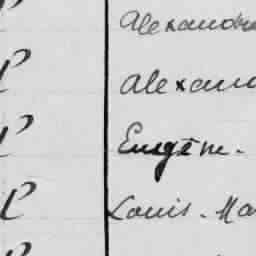 Alexandre
P Alexand
P Eugène.
P Louis. Ma